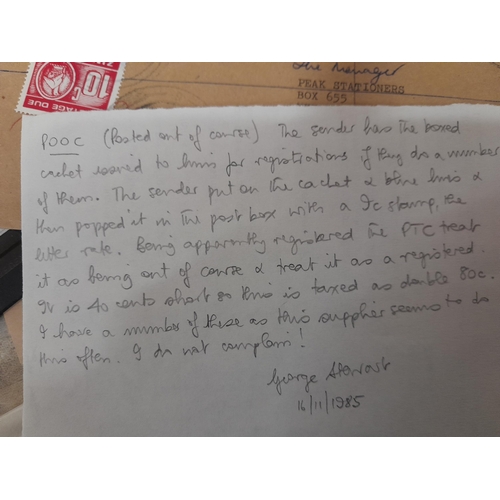 The Manager
PEAK STATIONERS
BOX 655
10c
POSTAGE DUE
POOC (Posted out of course) The sender has the boxed
cachet issued to him for registrations if they do a number
of them. The sender put on the cachet & blue lines &
then popped it in the post box with a 9c stamp, the
letter rate. Being apparently registered the PTC treat
it as being out of course & treat it as a registered.
It is 40 cents short so this is taxed as double 80c.
I have a number of these as this supplier seems to do
this often. I do not complain!
George Stewart
16/11/1985